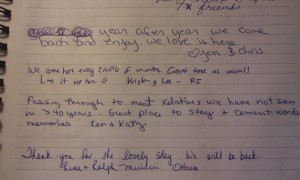 & friends
year after year we come
back and enjoy. we love is here
Jen & Chris
We come here every couple of months. Great time as usual!
Love it up here Kristen & Lee - RI
Passing through to meet Relatives we have not seen
in >40 years - Great place to stay & cement wonderful
memories Ken & Kathy
Thank you for the lovely stay We will be back
& Ralph Ottawa